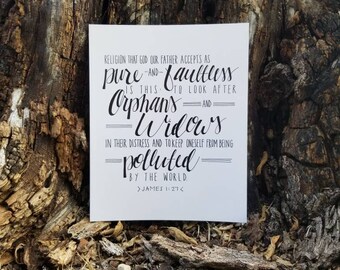 RELIGION THAT GOD OUR FATHER ACCEPTS AS
pure AND faultless
IS THIS TO LOOK AFTER
Orphans AND
Widows
IN THEIR DISTRESS AND TO KEEP ONESELF FROM BEING
polluted
BY THE WORLD
JAMES 1:27